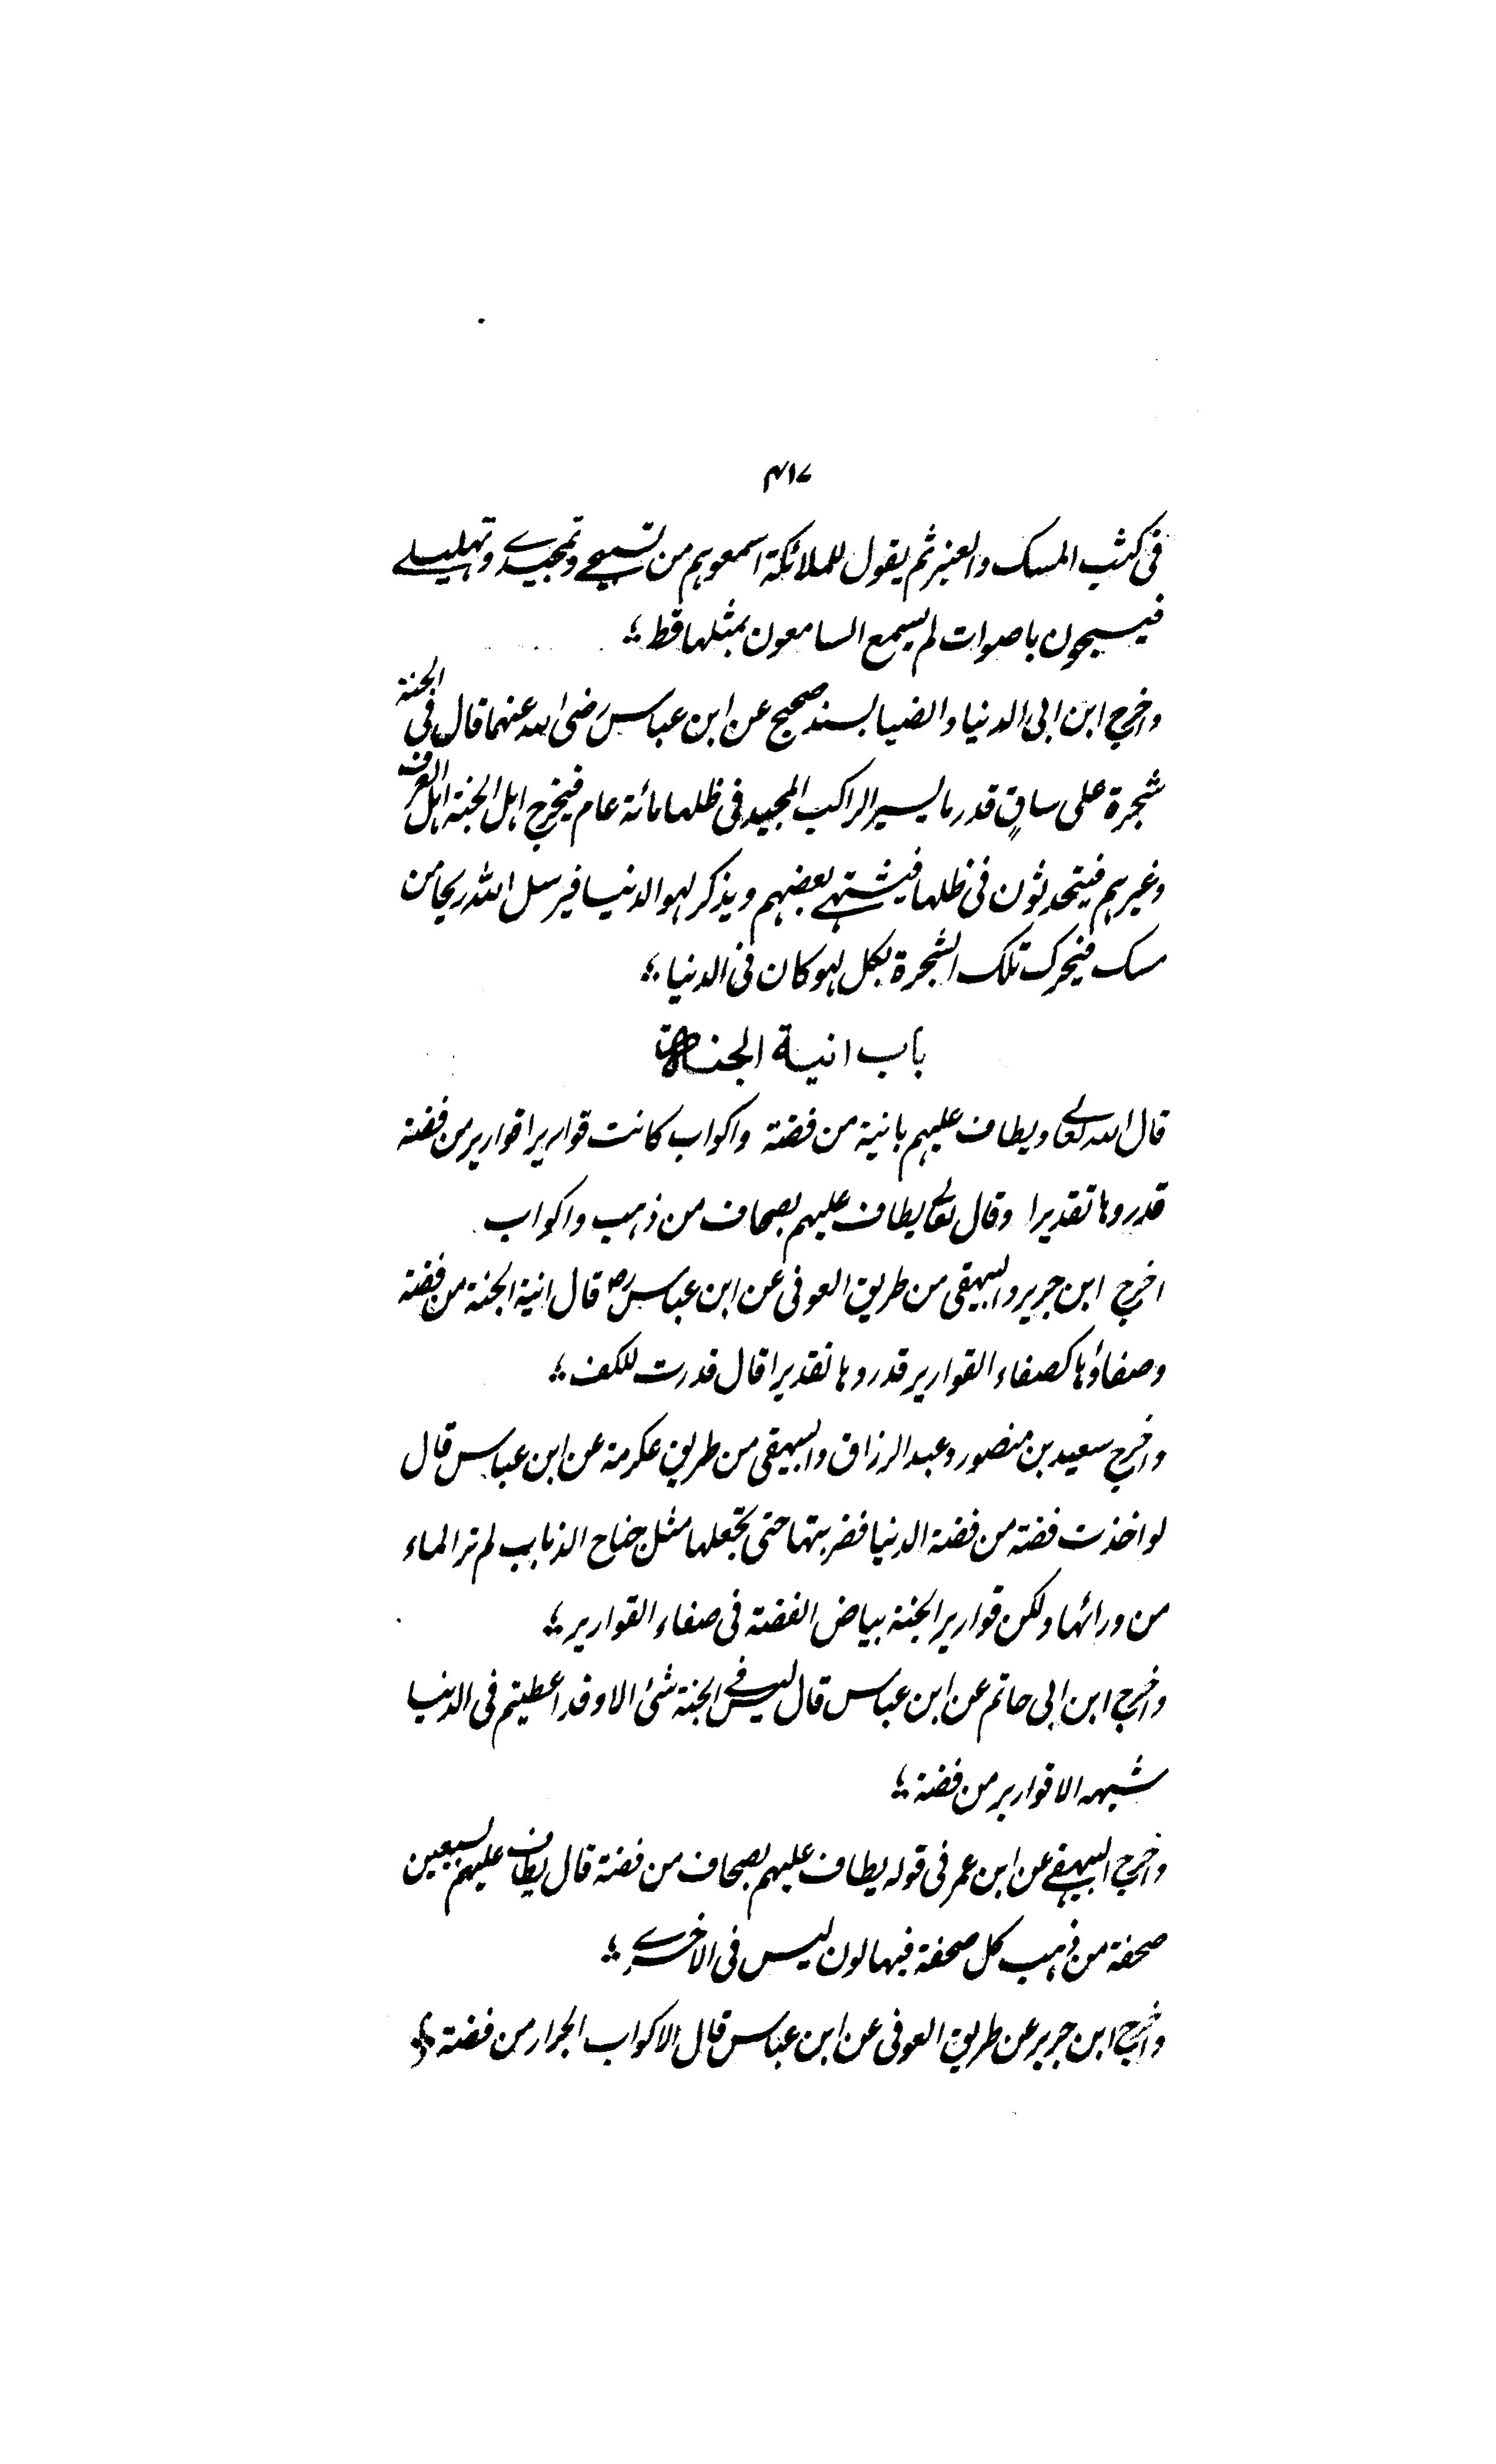 ۴۱۷
فی کثب المسک والعنبر ثم یقول للملائکة اسمعوہم من تسبیحے وتمجیدے وتہلیلے
فیسبحون باصوات لم یسمع السامعون بمثلہا قط ؛
واخرج ابن ابی الدنیا والضیا بسند صحیح عن ابن عباس رضی اللہ عنہما قال فی الجنة
شجرة علی ساقٍ قدر ما یسیر الراکب المجید فی ظلہا مائة عام فیخرج اہل الجنة اہل الغرف
وغیرہم فیتحدثون فی ظلہا فیشتہے بعضہم ویذکر لہو الدنیا فیرسل اللہ ریحا من
مسک فیحرک تلک الشجرة بکل لہو کان فی الدنیا ؛
باب انیة الجنة
قال اللہ تعالے ویطاف علیہم بانیة من فضة واکواب کانت قواریرا قواریر من فضة
قدروہا تقدیرا وقال تعالے یطاف علیہم بصحاف من ذہب واکواب
اخرج ابن جریر والبیہقی من طریق العوفی عن ابن عباس رض قال انیة الجنة من فضة
وصفاؤہا کصفاء القواریر قدروہا تقدیرا قال قدرت للکف ؛
واخرج سعید بن منصور وعبد الرزاق والبیہقی من طریق عکرمة عن ابن عباس قال
لو اخذت فضة من فضة الدنیا فضربتہا حتی تجعلہا مثل جناح الذباب لم تر الماء
من ورائہا ولکن قواریر الجنة بیاض الفضة فی صفاء القواریر ؛
واخرج ابن ابی حاتم عن ابن عباس قال لیس فے الجنة شیٔ الا وقد اعطیتم فی الدنیا
شبہہ الا قواریر من فضة ؛
واخرج البیہقے عن ابن عمر فی قولہ یطاف علیہم بصحاف من فضة قال یطاف علیہم بسبعین
صحفة من ذہب کل صحفة فیہا لون لیس فی الاخرے ؛
واخرج ابن جریر عن طریق العوفی عن ابن عباس قال الاکواب الجرار من فضة ؛